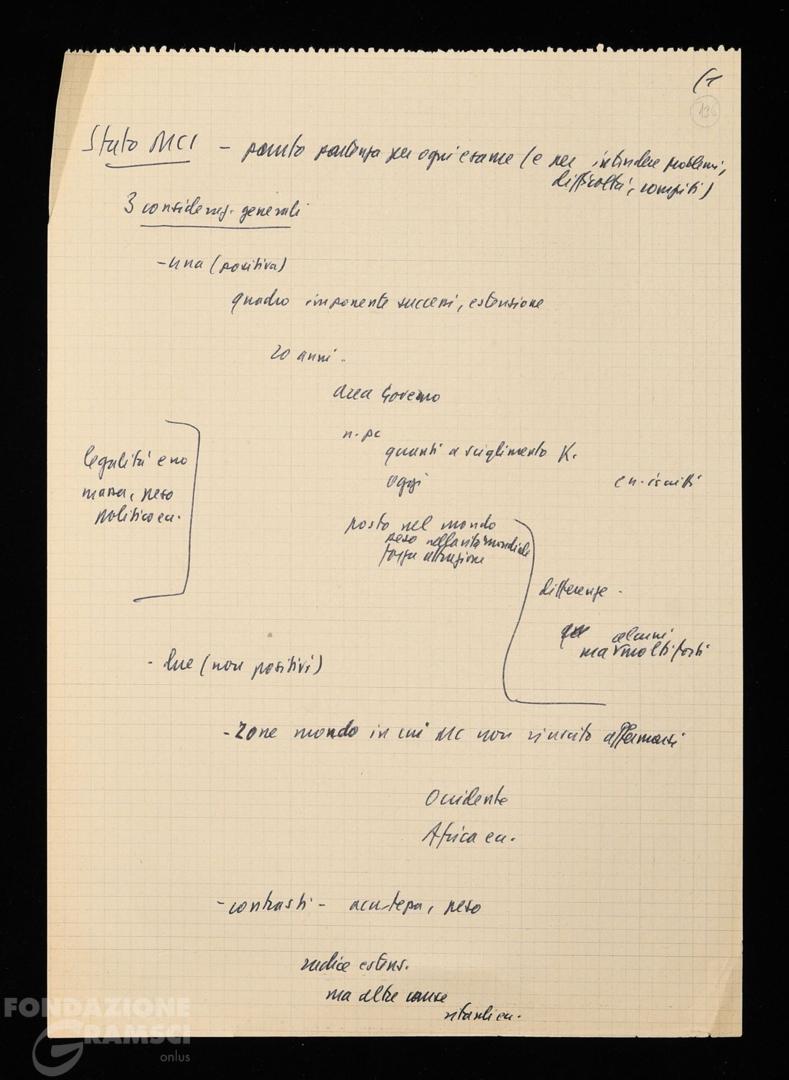 (1
136
Stato MCI – punto partenza per ogni esame (e per intendere problemi,
difficoltà, compiti)
3 consideraz. generali
– una (positiva)
quadro imponente successi, estensione
20 anni.
area Governo
n. pc
quanti a scioglimento K.
oggi
e n. iscritti
legalità e no
massa, peso
politico ecc.
posto nel mondo
peso nella vita mondiale
forza attrazione
differenze.
alcuni
ma molti forti
– due (non positivi)
– Zone mondo in cui MC non riuscito affermarsi
Occidente
Africa ecc.
– contrasti – acutezza, peso
radice estens.
ma altre cause
ritardi ecc.
FONDAZIONE
GRAMSCI
onlus